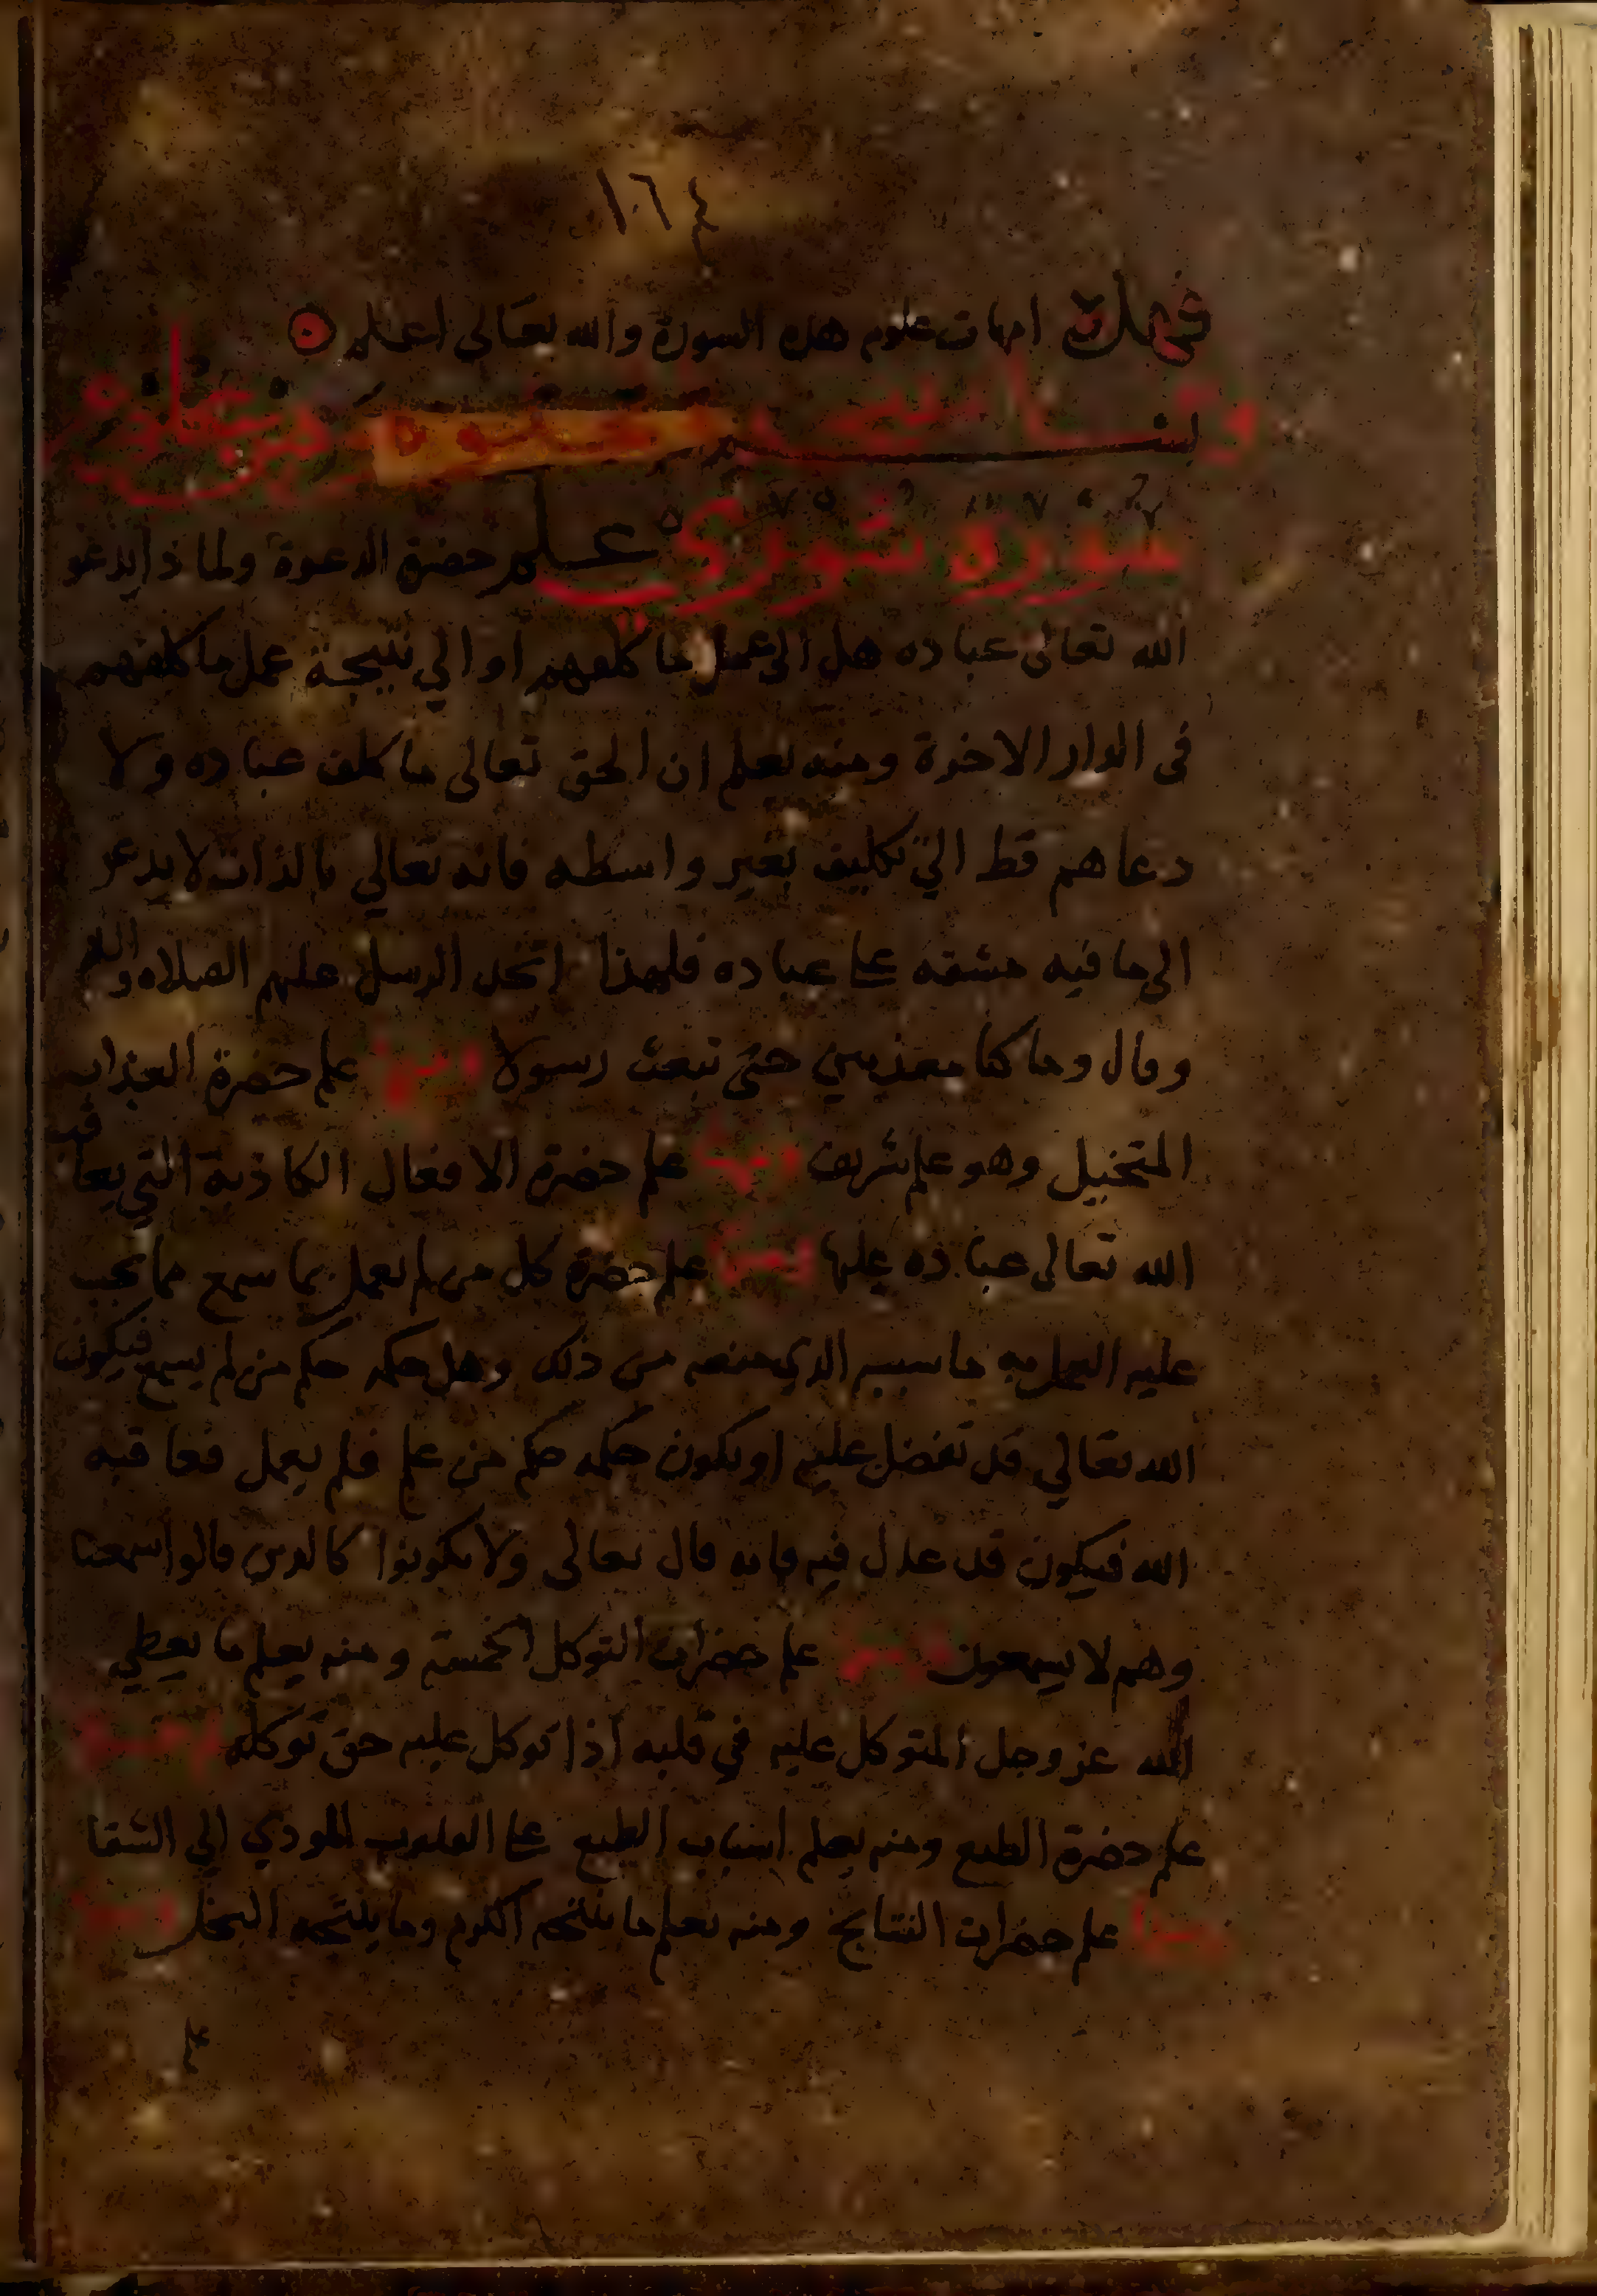 ١٦٤
فهذه امهات علوم هذه السورة والله تعالى اعلم
سورة شوري علم حضرة الدعوة ولما ذا يدعو
الله تعالى عباده هل الى عمل ما كلفهم او الي نتيجة عمل ما كلفهم
في الدار الاخرة ومنه يعلم ان الحق تعالى ما كلف عباده ولا
دعاهم قط الي تكليف بغير واسطه فانه تعالي بالذات لا يدعو
الى ما فيه مشقه على عباده فلهذا اتخذ الرسل عليهم الصلاه والسلام
وقال وما كنا معذبين حتى نبعث رسولا ومنها علم حضرة العذاب
المتخيل وهو علم شريف ومنها علم حضرة الافعال الكاذبة التي يعاقب
الله تعالى عباده عليها ومنها علم حضرة كل من لم يعمل بما سمع مما يجب
عليه العمل به ما سببه الذي منعه من ذلك وهل حكمه حكم من لم يسمع فيكون
الله تعالي قد تفضل عليه او يكون حكمه حكم من علم فلم يعمل فعاقبه
الله فيكون قد عدل فيه فانه قال تعالى ولا تكونوا كالذين قالوا سمعنا
وهم لا يسمعون ومنها علم حضرات التوكل الخمسة ومنه يعلم ما يعطي
الله عز وجل المتوكل عليه في قلبه اذا توكل عليه حق توكله ومنها
علم حضرة الطبع ومنه يعلم اسباب الطبع على القلوب المودي الي الشقا
ومنها علم حضرات النتايج ومنه يعلم ما ينتجه الكرم وما ينتجه البخل ومنها
علم